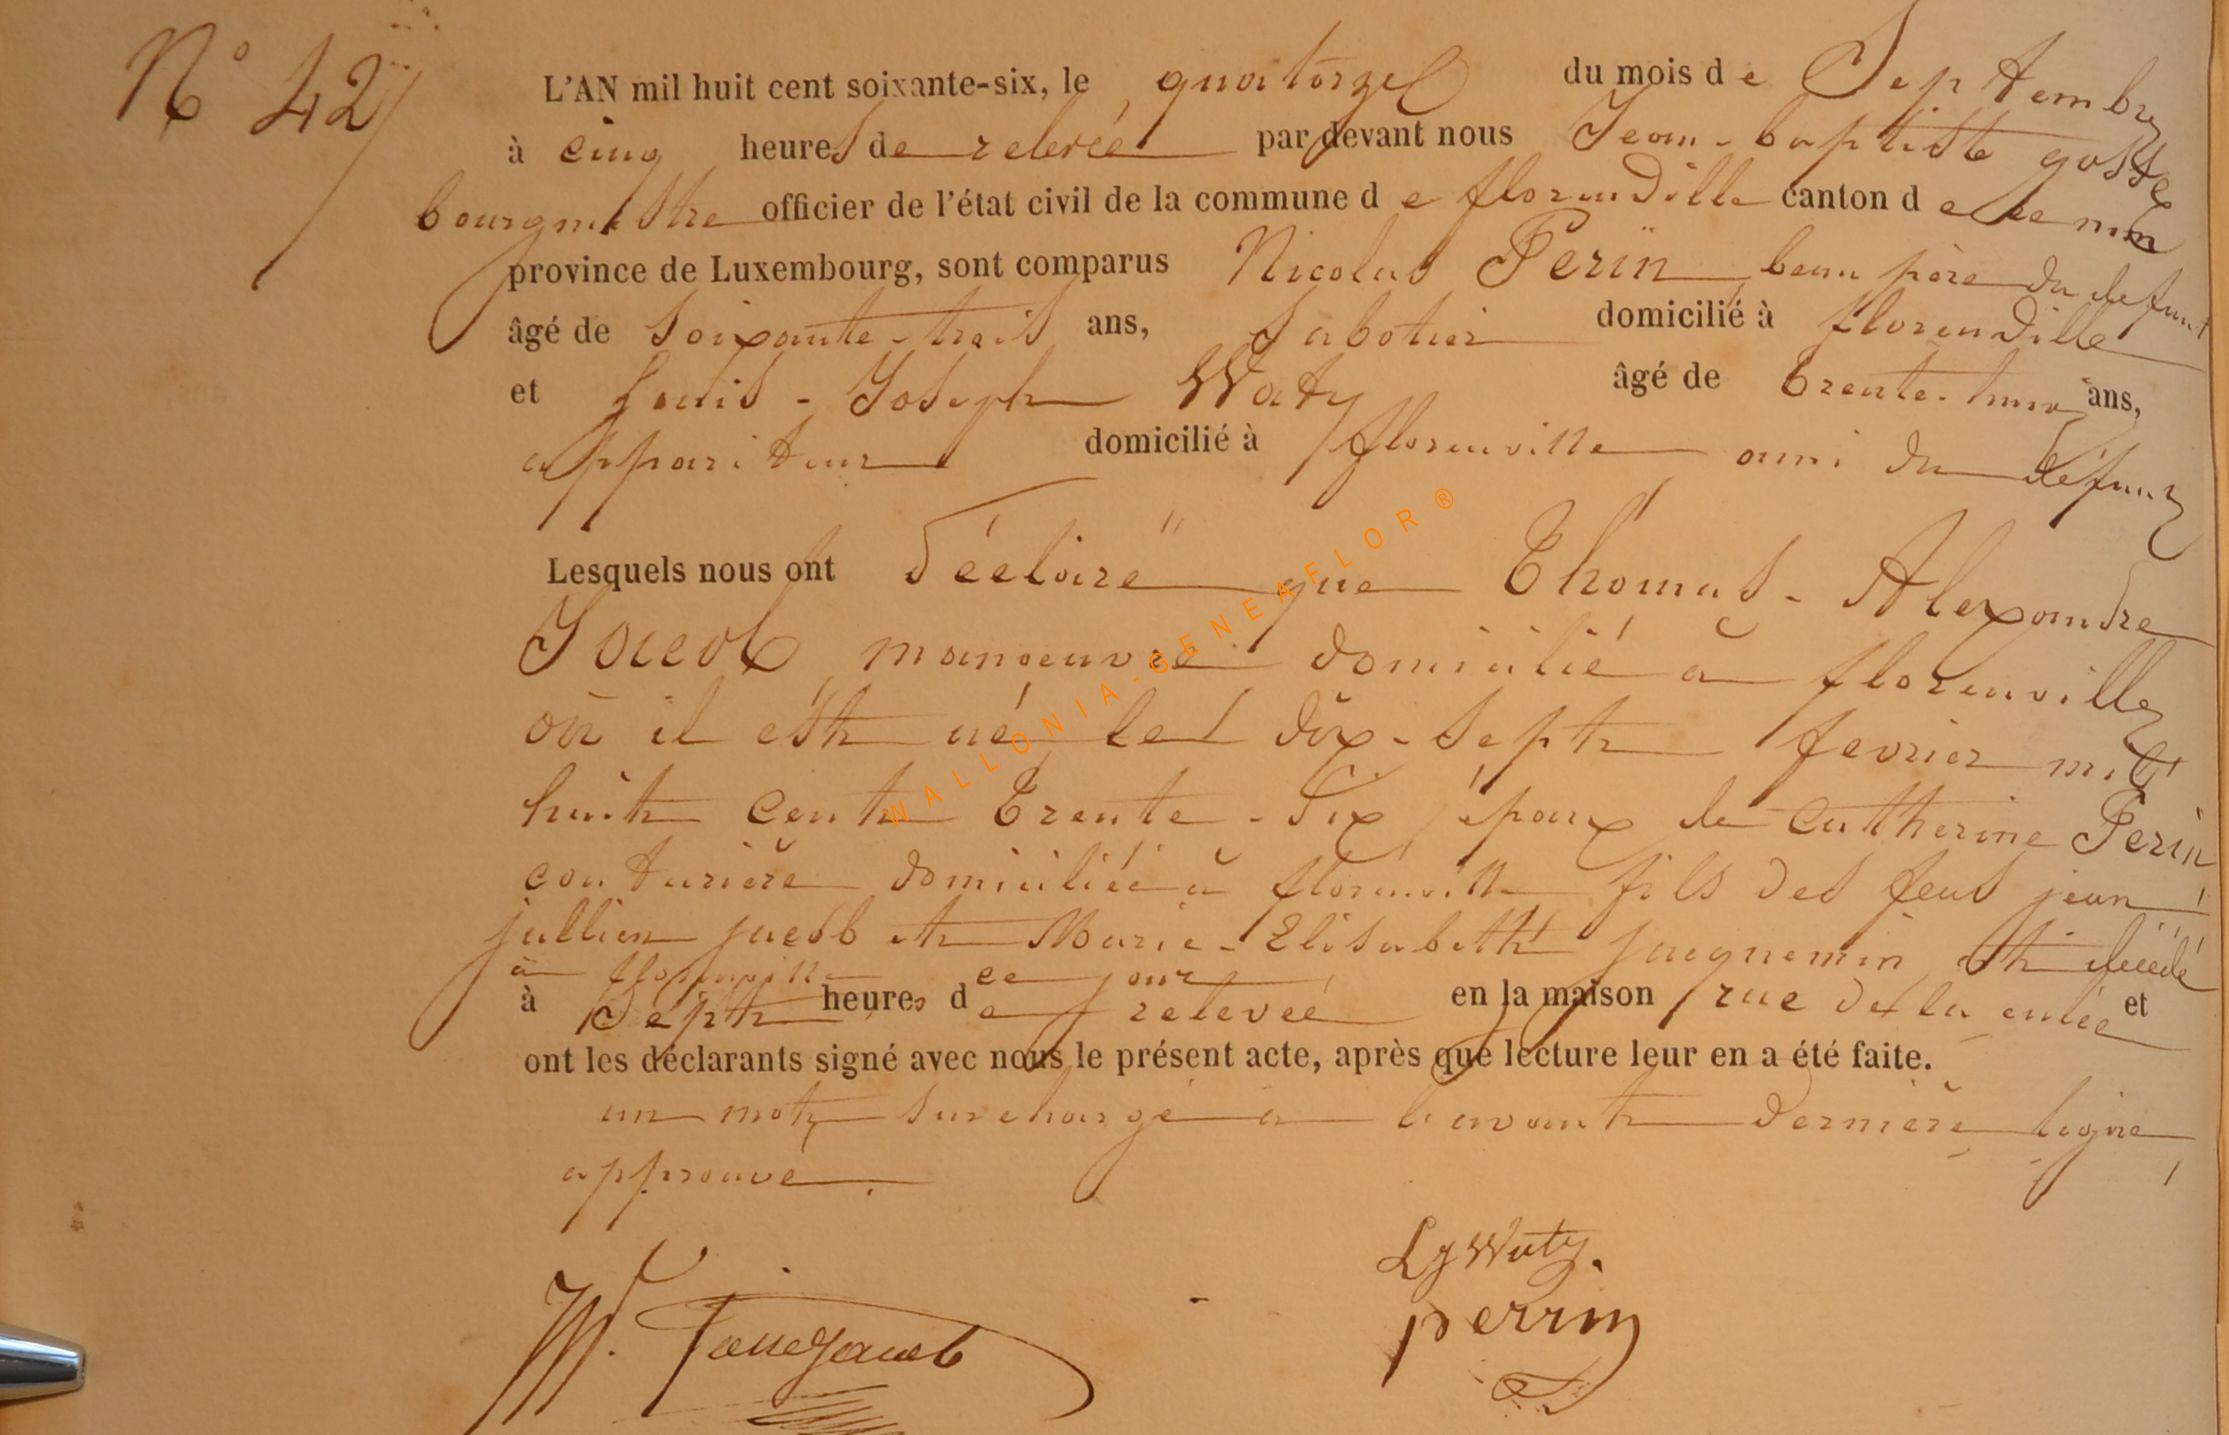 N° 42
L'AN mil huit cent soixante-six, le quatorze du mois de Septembre
à cinq heures de relevée par devant nous Jean-baptiste gosse
bourgmestre officier de l'état civil de la commune de florenville canton de
province de Luxembourg, sont comparus Nicolas Perin beau père du defunt
âgé de soixante-trois ans, Sabotier domicilié à florenville
et Louis-Joseph Waty âgé de trente-huit ans,
appariteur domicilié à florenville ami du défunt
Lesquels nous ont déclaré que Thomas-Alexandre
Jacob manoeuvre domicilié à florenville
où il est né le dix-sept fevrier mil
huit cent trente-six époux de Catherine Perin
couturière domiciliée à florenville fils des feus jean
jullien jacob et Marie-Elisabeth jacquemin est décédé
à florenville ce jour
à Sept heures de relevée en la maison rue de la et
ont les déclarants signé avec nous le présent acte, après que lecture leur en a été faite.
un mot surchargé a l'avant dernière ligne
approuvé.
LJ Waty.
perrin
WALLONIA-GENEAFLOR®